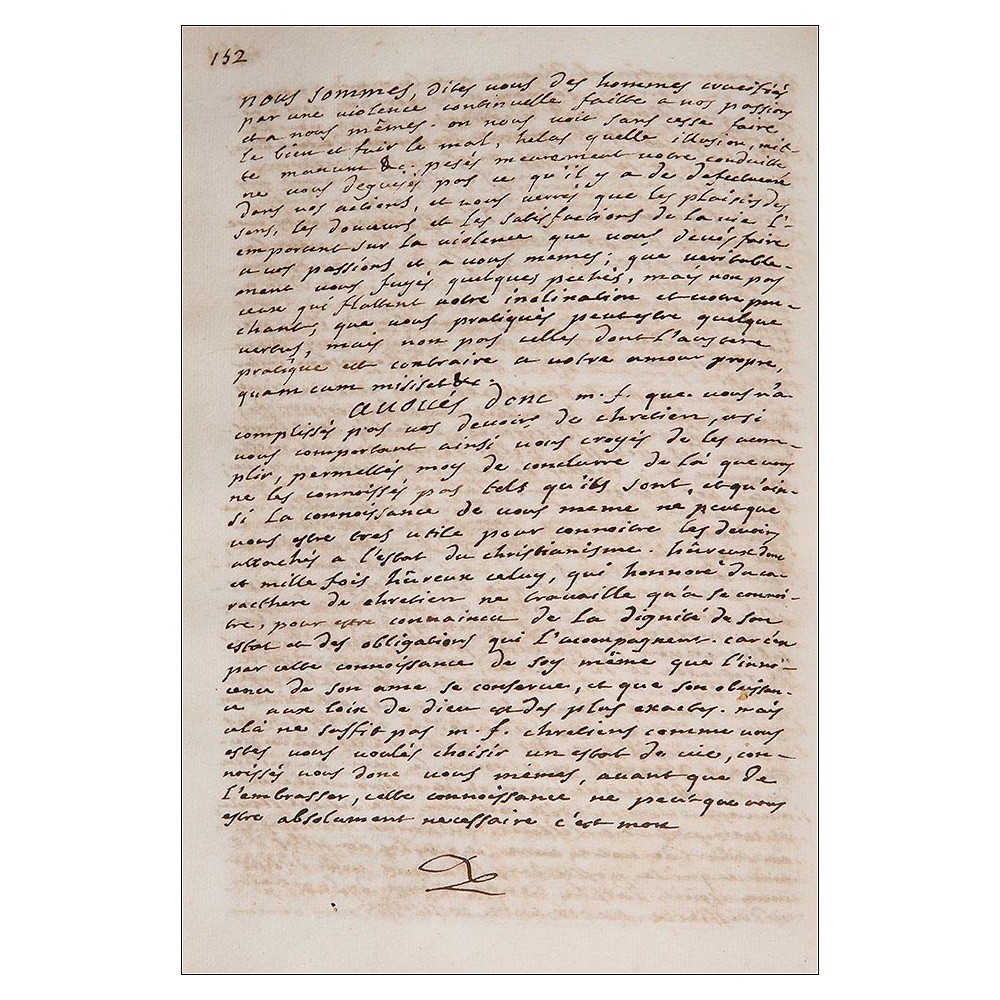 152
nous sommes, dites vous des hommes crucifiés
par une violence continuelle faitte a nos passions
et a nous mêmes. on nous voit sans cesse faire
le bien et fuir le mal, helas quelle illusion, mit-
te manum &c. pesés meurement votre conduitte
ne vous deguisés pas ce qu'il y a de defectueux
dans vos actions, et vous verrés que les plaisirs des
sens, les douceurs et les satisfactions de la vie l'-
emportent sur la violence que vous devés faire
a vos passions et a vous memes; que veritable-
ment vous fuyés quelques pechés, mais non pas
ceux qui flattent votre inclination et votre pen-
chant, que vous pratiqués peutestre quelque
vertus, mais non pas celles dont l'austere
pratique est contraire a votre amour propre,
quam cum misisset &c.
avoués donc m. f. que vous n'a-
complissés pas vos devoirs de chrétien, et si
vous comportant ainsi vous croyés de les acom-
plir, permettés moy de conclurre de là que vous
ne les connoissés pas tels qu'ils sont, et qu'ain-
si la connoissance de vous meme ne peut que
vous estre tres utile pour connoitre les devoirs
attachés a l'estat du christianisme. hûreux donc
et mille fois hûreux celuy, qui honnoré du ca-
racthere de chretien ne travaille qu'a se connoi-
tre, pour estre convaincu de la dignité de son
estat et des obligations qui l'acompagnent. car c'en
par cette connoissance de soy même que l'inno-
cence de son ame se conserve, et que son obeissan-
ce aux loix de dieu est des plus exactes. mais
celà ne suffit pas m. f. chretiens comme vous
estes vous voulés choisir un estat de vie, con-
noissés vous donc vous mêmes, avant que de
l'embrasser, cette connoissance ne peut que vous
estre absolument necessaire c'est mon